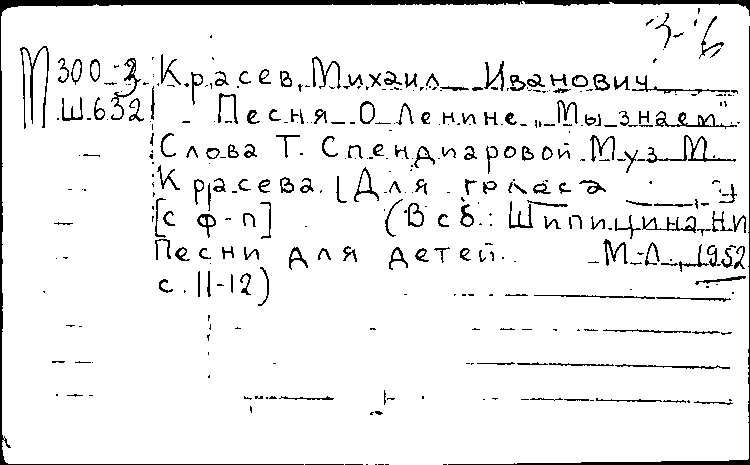 3-6
М 300-3 Красев, Михаил Иванович.
Ш632 - Песня о Ленине „Мы знаем"
Слова Т. Спендиаровой Муз М.
Красева. [Для голоса
[с ф-п] (В сб.: Шипицина, Н.И
Песни для детей. М-Л., 1952
с. 11-12)